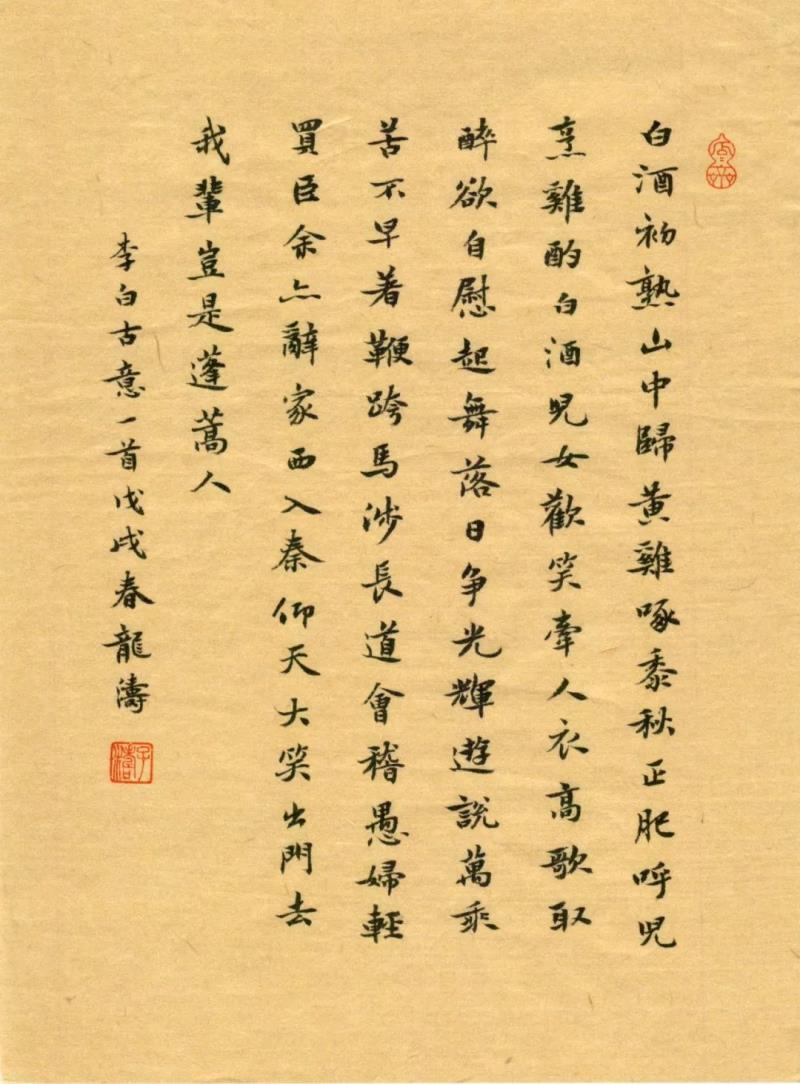 白酒初熟山中歸黃雞啄黍秋正肥呼兒
烹雞酌白酒兒女歡笑牽人衣高歌取
醉欲自慰起舞落日争光輝遊說萬乘
苦不早著鞭跨馬涉長道會稽愚婦輕
買臣余亦辭家西入秦仰天大笑出門去
我輩豈是蓬蒿人
李白古意一首戊戌春龍濤